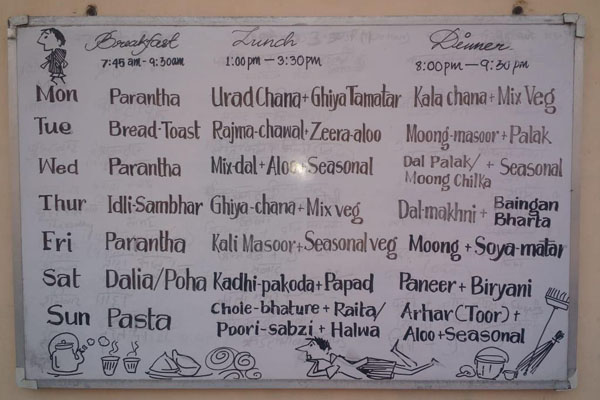 Breakfast Lunch Dinner
7:45am-9:30am 1:00pm-3:30pm 8:00pm-9:30pm
Mon Parantha Urad Chana+Ghiya Tamatar Kala chana+Mix Veg
Tue Bread-Toast Rajma-chawal+Zeera-aloo Moong-masoor+Palak
Wed Parantha Mix-dal+Aloo+Seasonal Dal Palak/Moong Chilka + Seasonal
Thur Idli-Sambhar Ghiya-chana+Mix veg Dal-makhni + Baingan Bharta
Fri Parantha Kali Masoor+Seasonal veg Moong + Soya-matar
Sat Dalia/Poha Kadhi-pakoda+Papad Paneer+Biryani
Sun Pasta Chole-bhature+Raita/ Arhar(Toor)+
Poori-sabzi+Halwa Aloo+Seasonal